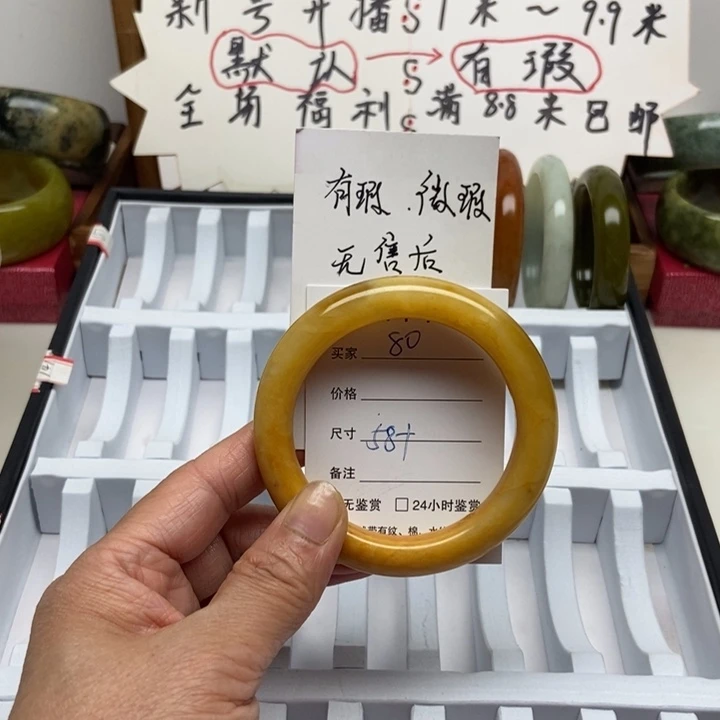 新号开播 1米～9.9米
默认→有瑕
全场福利满8.8米包邮
有瑕.微瑕
无售后
买家 80
价格
尺寸 58+
备注
无鉴赏 □24小时鉴赏
带有纹、棉、